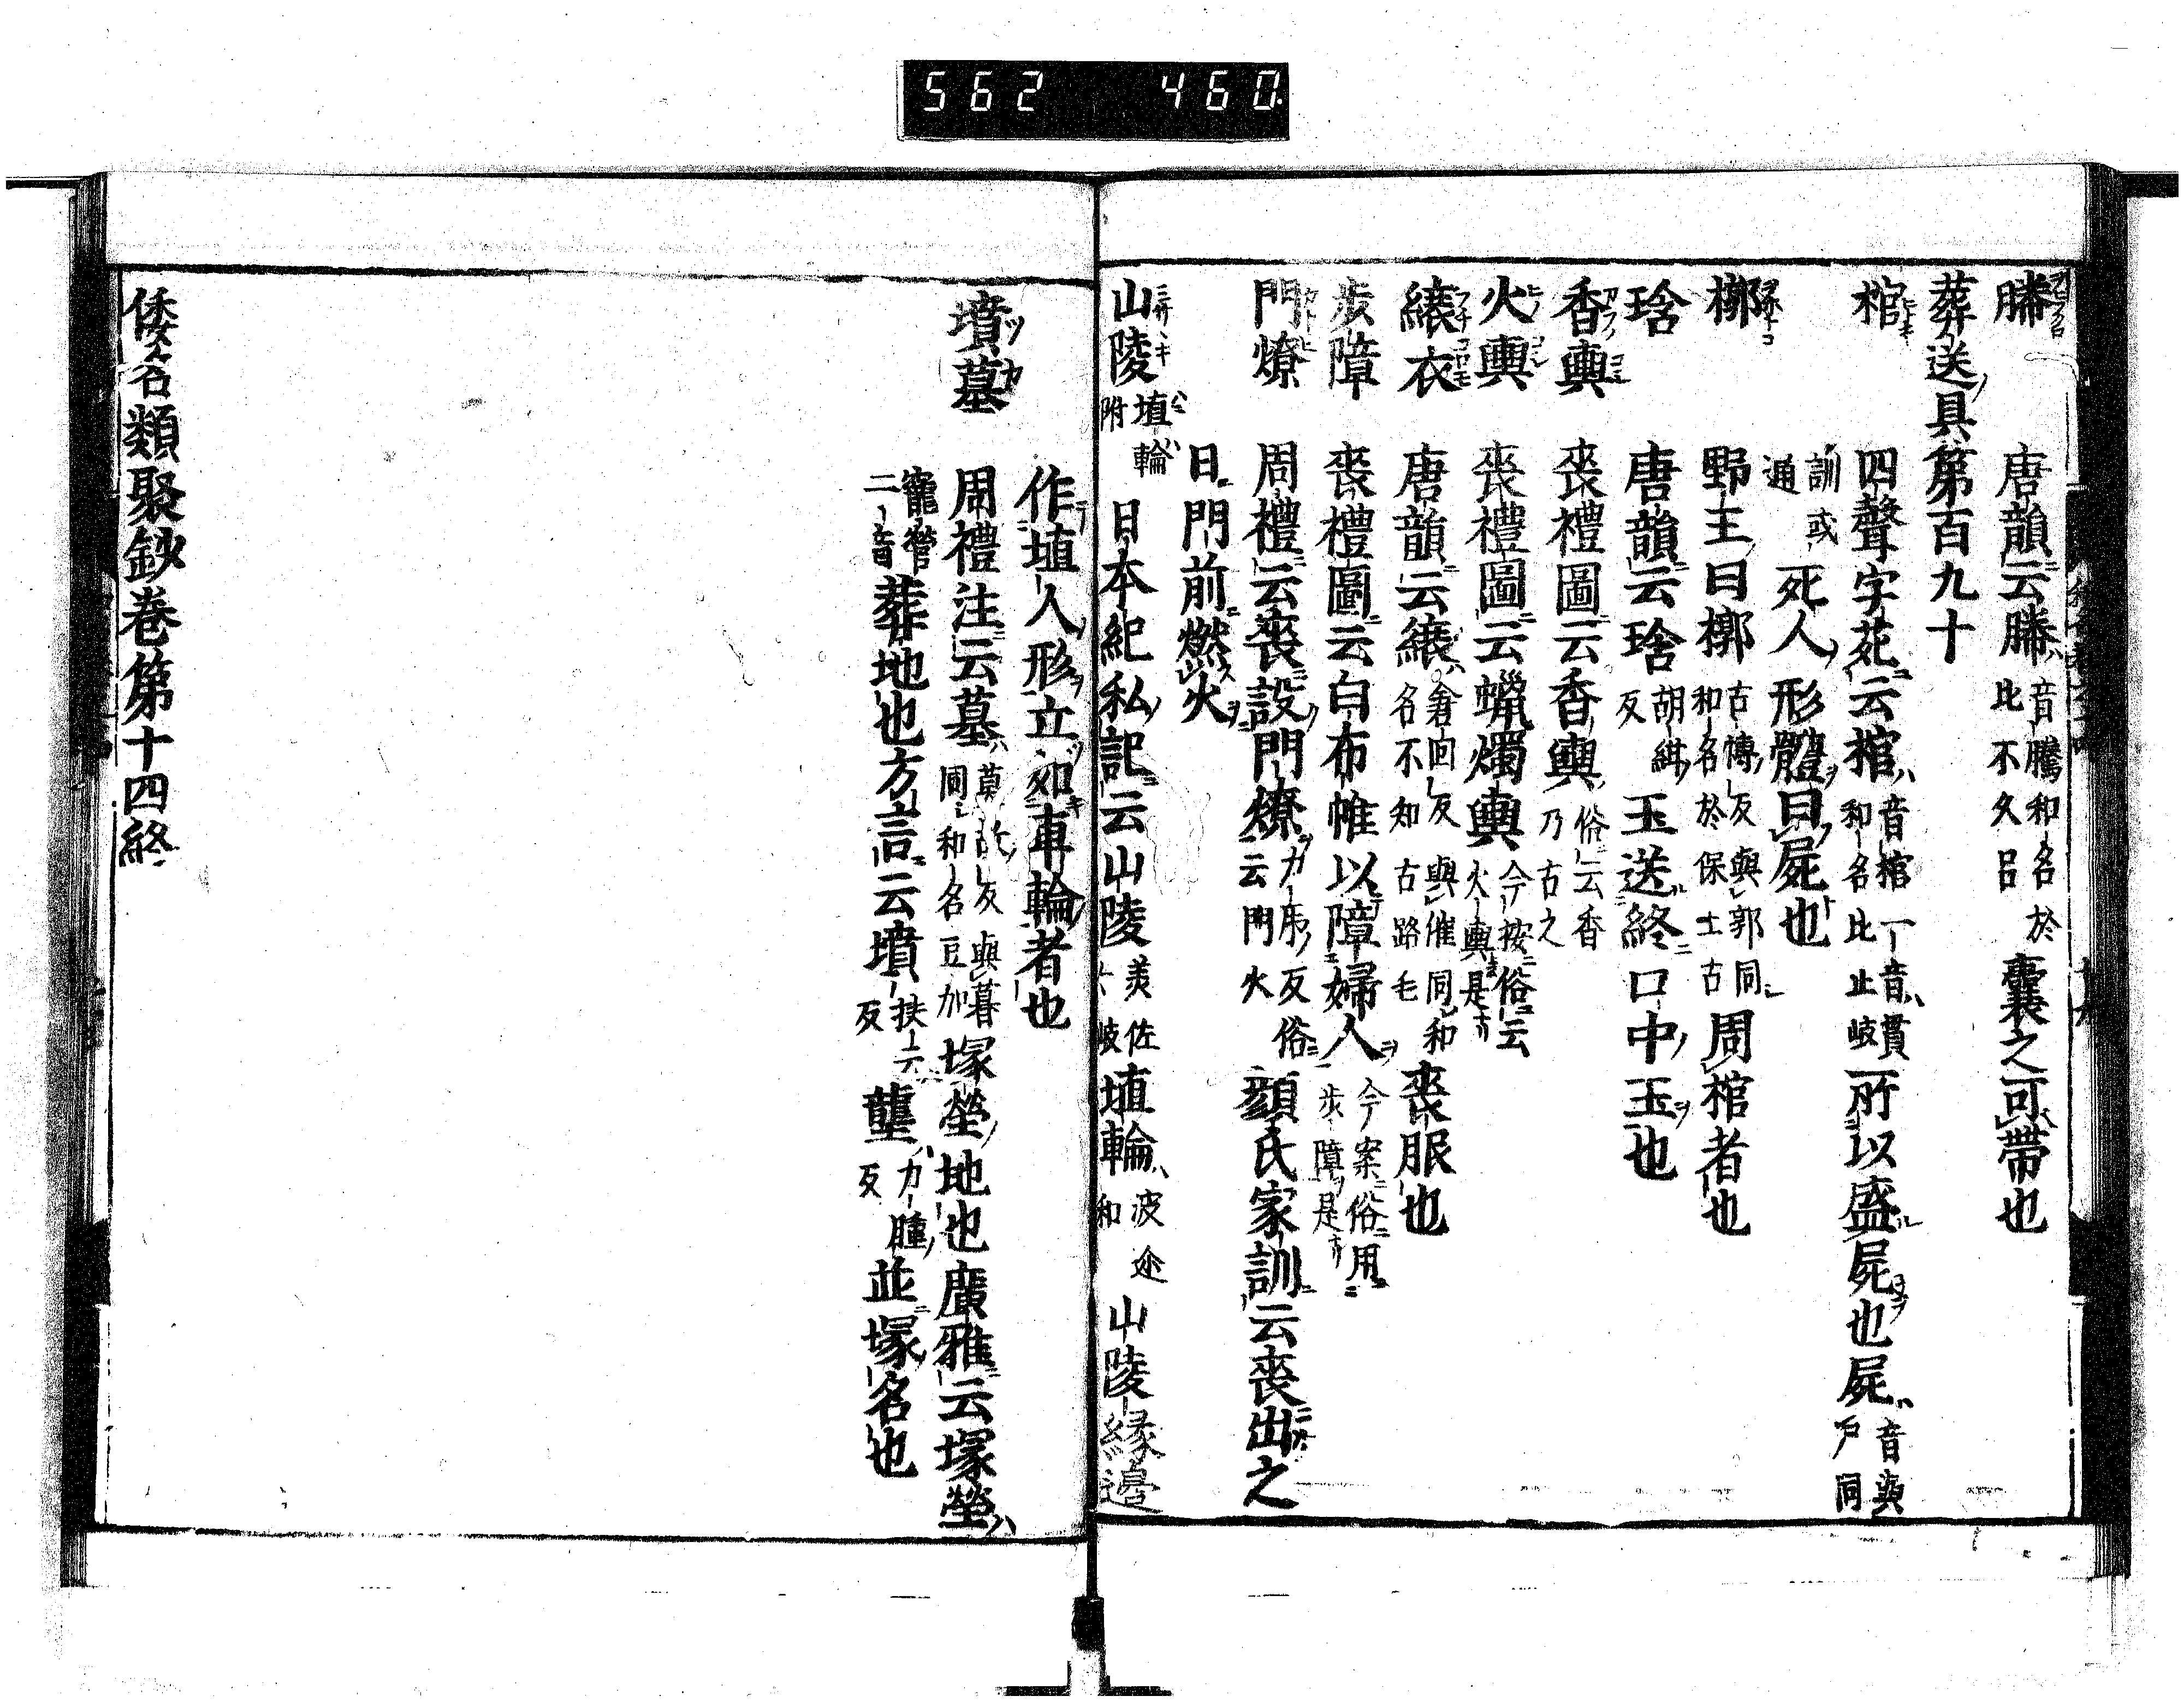 562 460
幐 唐韻云幐音騰和名於比不久呂囊之可帶也
葬送具第百九十
棺 四聲字苑云棺音棺一音貫和名比止岐所以盛屍也屍音與尸同
訓或通死人形體曰屍也
槨 野王曰槨古博反與郭同和名於保土古周棺者也
琀 唐韻云琀胡紺反玉送終口中玉也
香輿 喪禮圖云香輿俗云香乃古之
火輿 喪禮圖云蠟燭輿今按俗云火輿是
縗衣 唐韻云縗倉回反與催同和名不知古路毛喪服也
步障 喪禮圖云白布帷以障婦人今案俗用步障是
門燎 周禮云喪設門燎力反俗云門火顔氏家訓云喪出之
日門前燃火
山陵埴輪附 日本紀私記云山陵美佐々岐埴輪波迩和山陵縁邊
作埴人形立如車輪者也
墳墓 周禮注云墓莫故反與暮同和名豆加塚塋地也廣雅云塚塋
寵營二音葬地也方言云墳扶云反壟力腫反並塚名也
倭名類聚鈔卷第十四終